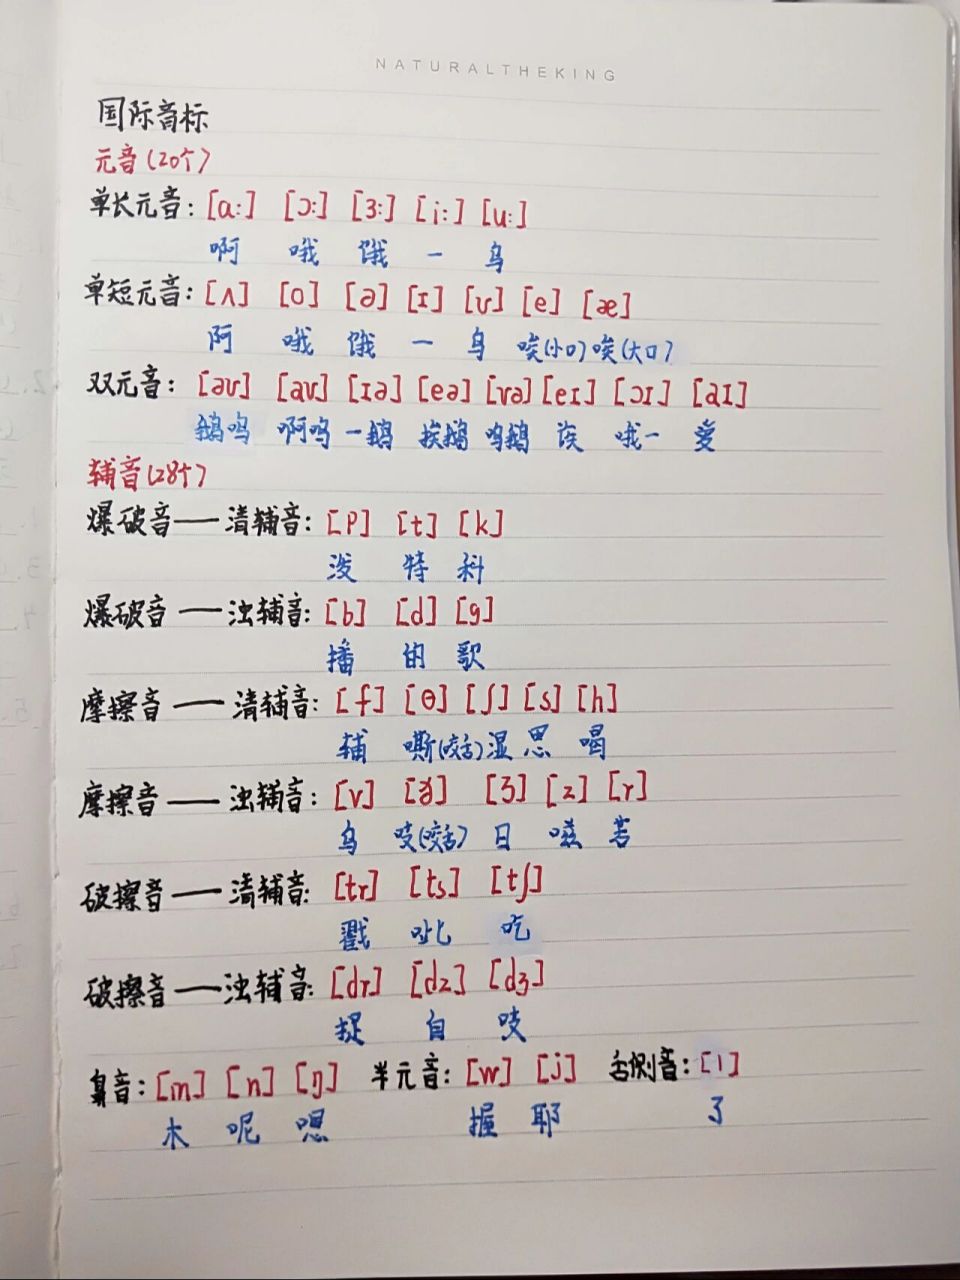 NATURALTHEKING
国际音标
元音(20个)
单长元音: [a:] [ɔ:] [ɜ:] [i:] [u:]
啊 哦 饿 一 乌
单短元音: [ʌ] [o] [ə] [ɪ] [ʋ] [e] [æ]
阿 哦 饿 一 乌 唉(小口) 唉(大口)
双元音: [əʋ] [aʋ] [ɪə] [eə] [ʋə] [eɪ] [ɔɪ] [aɪ]
鹅呜 啊呜 一鹅 挨鹅 呜鹅 诶 哦一 爱
辅音(28个)
爆破音——清辅音: [p] [t] [k]
泼 特 科
爆破音——浊辅音: [b] [d] [g]
播 的 歌
摩擦音——清辅音: [f] [θ] [ʃ] [s] [h]
辅 嘶(咬舌) 湿 思 喝
摩擦音——浊辅音: [v] [ð] [ʒ] [z] [r]
乌 吱(咬舌) 日 嗞 若
破擦音——清辅音: [tr] [ts] [tʃ]
戳 呲 吃
破擦音——浊辅音: [dr] [dz] [dʒ]
捉 自 吱
鼻音: [m] [n] [ŋ] 半元音: [w] [j] 舌侧音: [l]
木 呢 嗯 握 耶 了